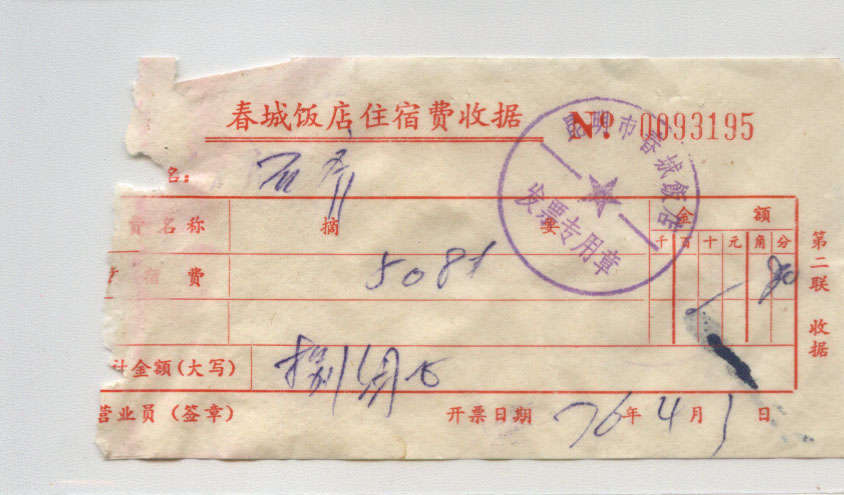 春城饭店住宿费收据 № 0093195
昆明市春城飯店
发票专用章
名：
费名称 摘 要 金 额
千 百 十 元 角 分
宿费 5081 80
计金额(大写) 捌角
营业员（签章） 开票日期 76 年 4 月 日
第二联 收据